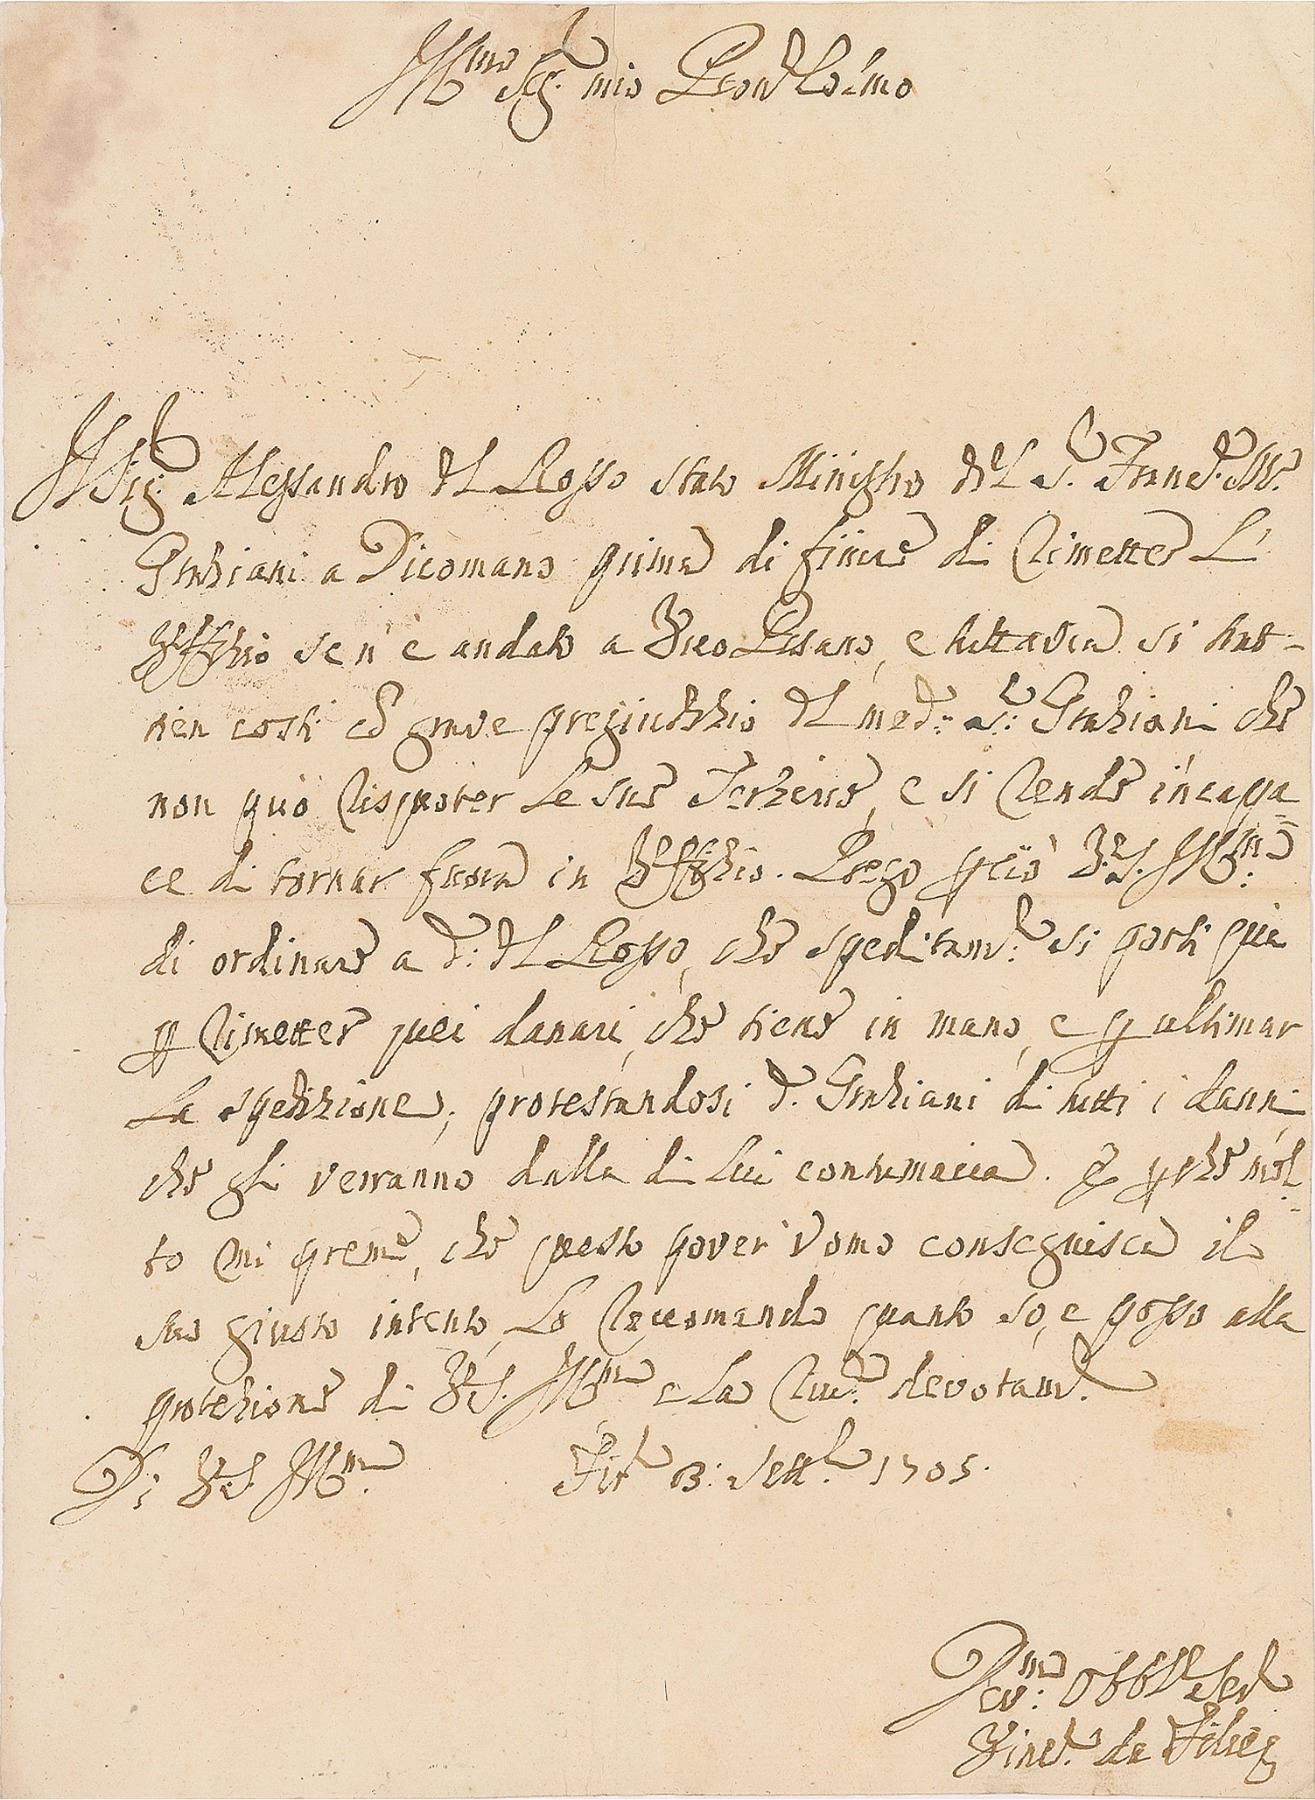 Ill.mo Sig.r mio Pron Col.mo
Il Sig.r Alessandro del Rosso stato Ministro del S.r Fran.co M.a
Graziani a Dicomano prima di finire di rimetter l'
Uffizio se n'è andato a Vico Pisano, e tuttavia si trat-
tien costì con grave pregiudizio del med.o S.r Graziani che
non può riscuoter le sue , e si rende incapa-
ce di tornar fuora in Uffizio. Prego perciò V.S. Ill.ma
di ordinare a d.o del Rosso, che speditam.te si porti qua
per rimetter quei danari, che tiene in mano, e per ultimar
la spedizione; protestandosi d.o Graziani di tutti i danni,
che gli verranno dalla di lui contumacia. E perche mol-
to mi preme, che questo pover' Uomo conseguisca il
suo giusto intento, lo raccomando quanto so, e posso alla
protezione di V.S. Ill.ma e la riv.o devotam.te
Di V.S. Ill.ma Fir.e 13: Sett.re 1705.
Dev.mo Obbl. Ser.
Vinc.o da Filic.a